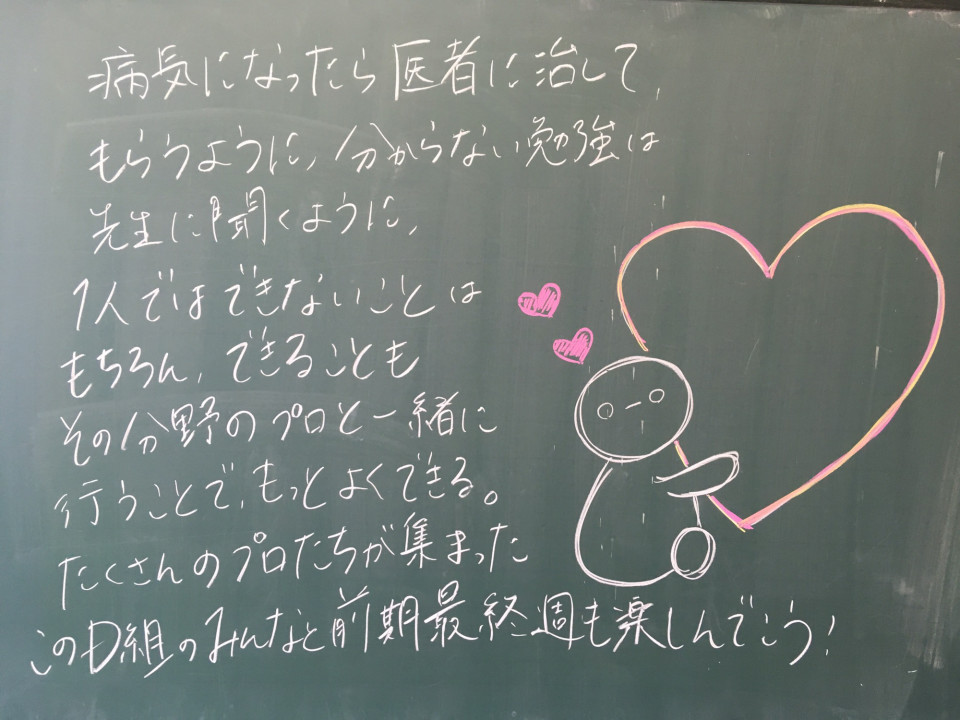 病気になったら医者に治して
もらうように、分からない勉強は
先生に聞くように、
1人ではできないことは
もちろん、できることも
その分野のプロと一緒に
行うことで、もっとよくできる。
たくさんのプロたちが集まった
このD組のみんなと前期最終週も楽しんでこう!